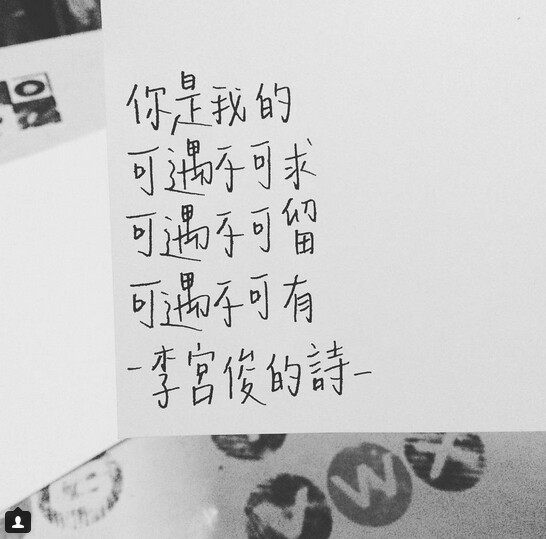 你是我的
可遇不可求
可遇不可留
可遇不可有
-李宮俊的詩-
V W X